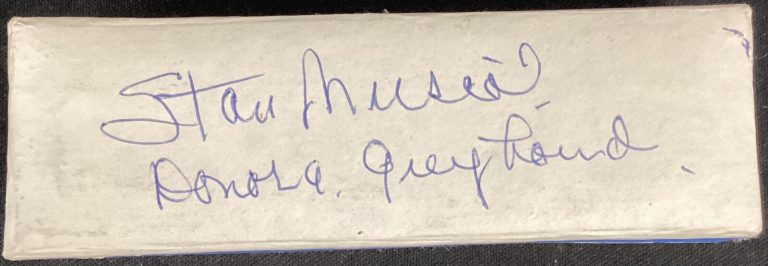 Stan Musial
Donora. Greyhound.